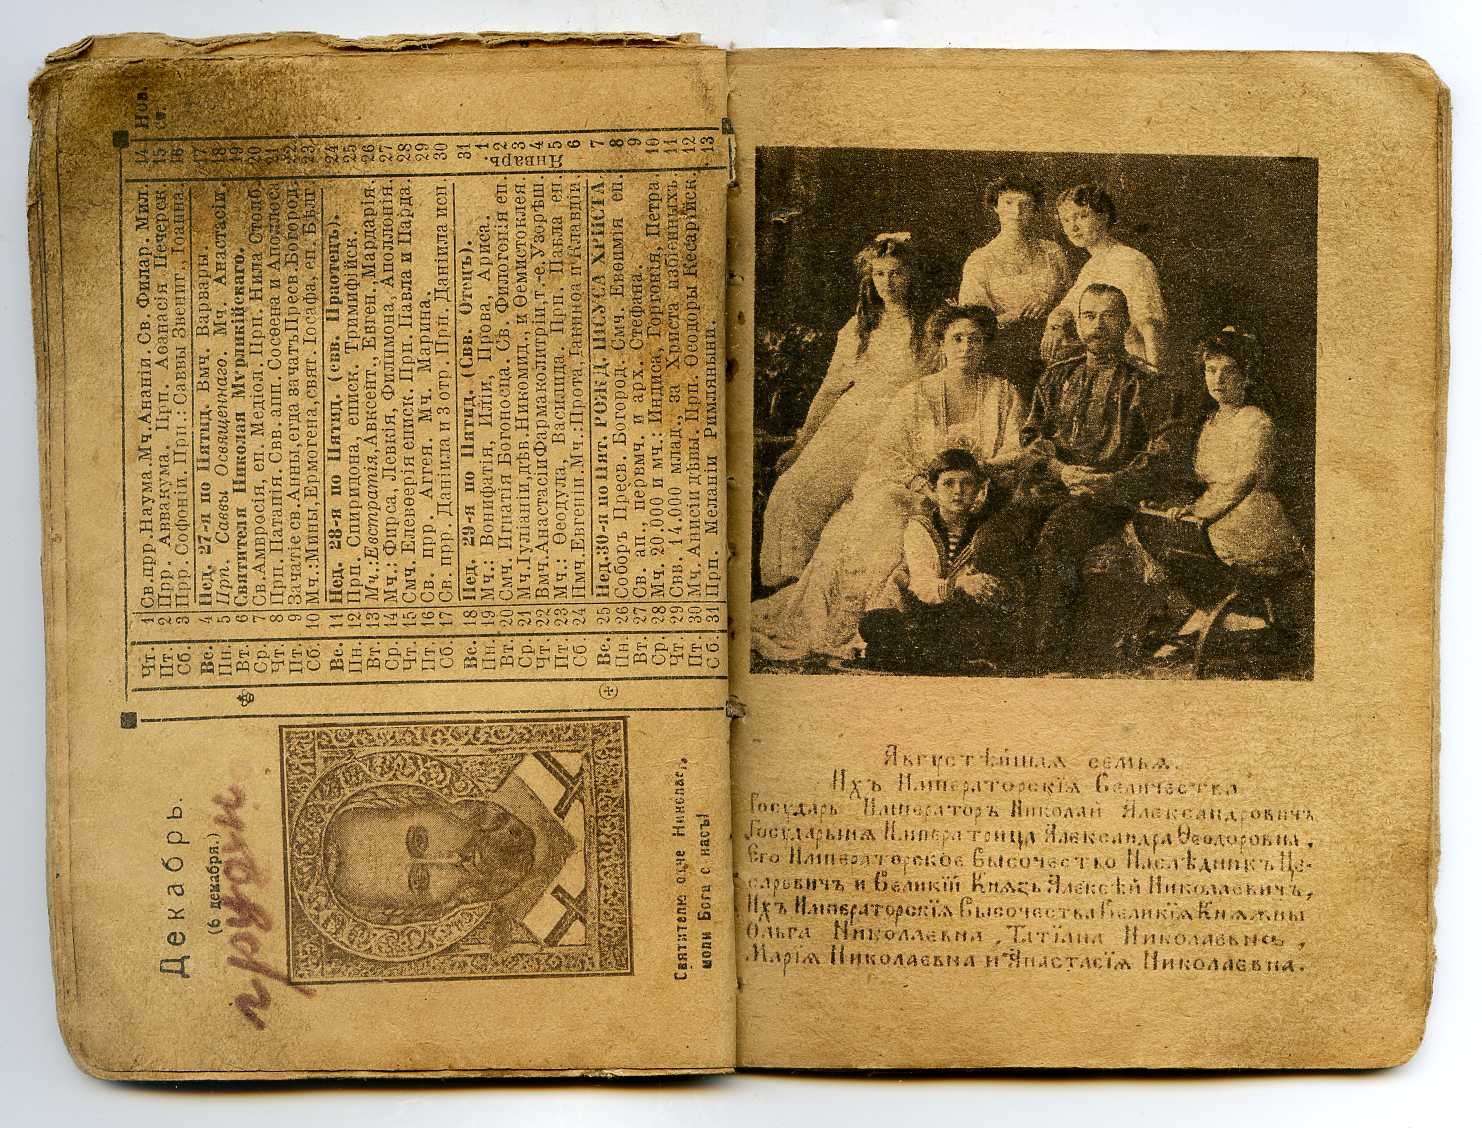 Декабрь.
(6 декабря.)
грудень
Святителю отче Николае,
моли Бога о насъ!
Нов.
ст.
Чт. 1 Св. прр. Наума. Мч. Ананіи. Св. Филар. Мил. 14
Пт. 2 Прр. Аввакума. Прп. Аѳанасія Печерск. 15
Сб. 3 Прр. Софоніи. Прп.: Саввы Звенит., Іоанна. 16
Вс. 4 Нед. 27-я по Пятид. Вмч. Варвары. 17
Пн. 5 Прп. Саввы Освященнаго. Мч. Анастасія. 18
Вт. 6 Святителя Николая Мѵрликійскаго. 19
Ср. 7 Св. Амвросія, еп. Медіол. Прп. Нила Столоб. 20
Чт. 8 Прп. Патапія. Свв. апп. Сосѳена и Аполлоса 21
Пт. 9 Зачатіе св. Анны, егда зачать Пресв. Богород. 22
Сб. 10 Мч.: Мины, Ермогена, свят. Іосафа, еп. Бѣлг. 23
Вс. 11 Нед. 28-я по Пятид. (свв. Праотецъ). 24
Пн. 12 Прп. Спиридона, еписк. Тримифійск. 25
Вт. 13 Мч.: Евстратія, Авксент., Евген., Мардарія. 26
Ср. 14 Мч.: Ѳирса, Левкія, Филимона, Аполлонія 27
Чт. 15 Смч. Елевѳерія еписк. Прп. Павла и Парда. 28
Пт. 16 Св. прр. Аггея. Мч. Марина. 29
Сб. 17 Св. прр. Даніила и 3 отр. Прп. Даніила исп. 30
Вс. 18 Нед. 29-я по Пятид. (Свв. Отецъ). 31
Пн. 19 Мч.: Вонифатія, Иліи, Прова, Ариса. 1
Вт. 20 Смч. Игнатія Богоносца. Св. Филогонія еп. 2
Ср. 21 Мч. Іуліаніи, дѣв. Никомид., и Ѳемистоклея. 3
Чт. 22 Вмч. Анастасіи Фармаколитріи, т.-е. Узорѣш. 4
Пт. 23 Мч.: Ѳеодула, Василида. Прп. Павла еп. 5
Сб. 24 Нмч. Евгеніи. Мч.: Прота, Іакинѳа и Клавдія. 6
Январь.
Вс. 25 Нед. 30-я по Пят. РОЖД. ІИСУСА ХРИСТА. 7
Пн. 26 Соборъ Пресв. Богород. Смч. Евѳимія еп. 8
Вт. 27 Св. ап., первмч. и арх. Стефана. 9
Ср. 28 Мч. 20,000 и мч.: Индиса, Горгонія, Петра. 10
Чт. 29 Свв. 14.000 млад., за Христа избіенныхъ. 11
Пт. 30 Мч. Анисіи дѣвы. Прп. Ѳеодоры Кесарійск. 12
Сб. 31 Прп. Меланіи Римляныни. 13
Августѣйшая семья.
Ихъ Императорскія Величества
Государь Императоръ Николай Александровичъ
Государыня Императрица Александра Ѳеодоровна,
Его Императорское Высочество Наслѣдникъ Це-
саревичъ и Великій Князь Алексѣй Николаевичъ,
Ихъ Императорскія Высочества Великія Княжны
Ольга Николаевна, Татіана Николаевна,
Марія Николаевна и Анастасія Николаевна.